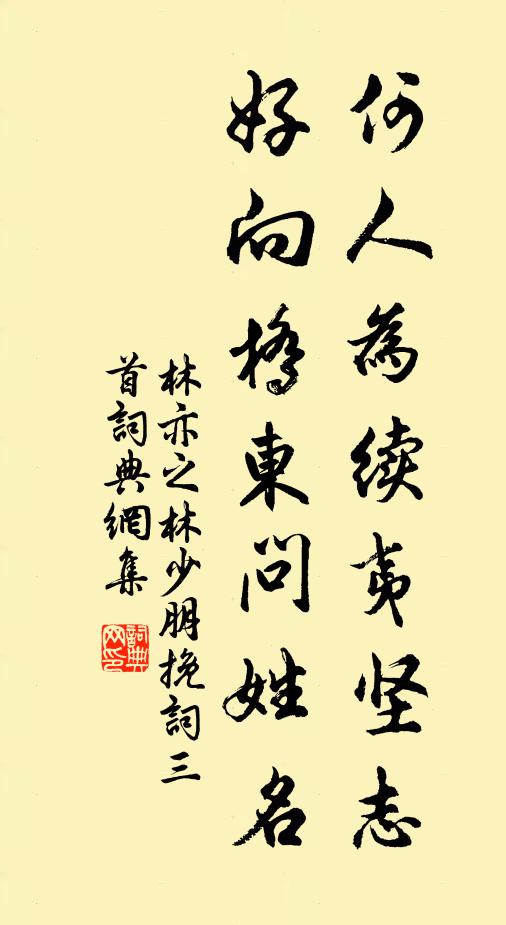 何人為续夷坚志
好向橋東問姓名
林亦之林少朋挽詞三
首詞典網集
詞典
网印